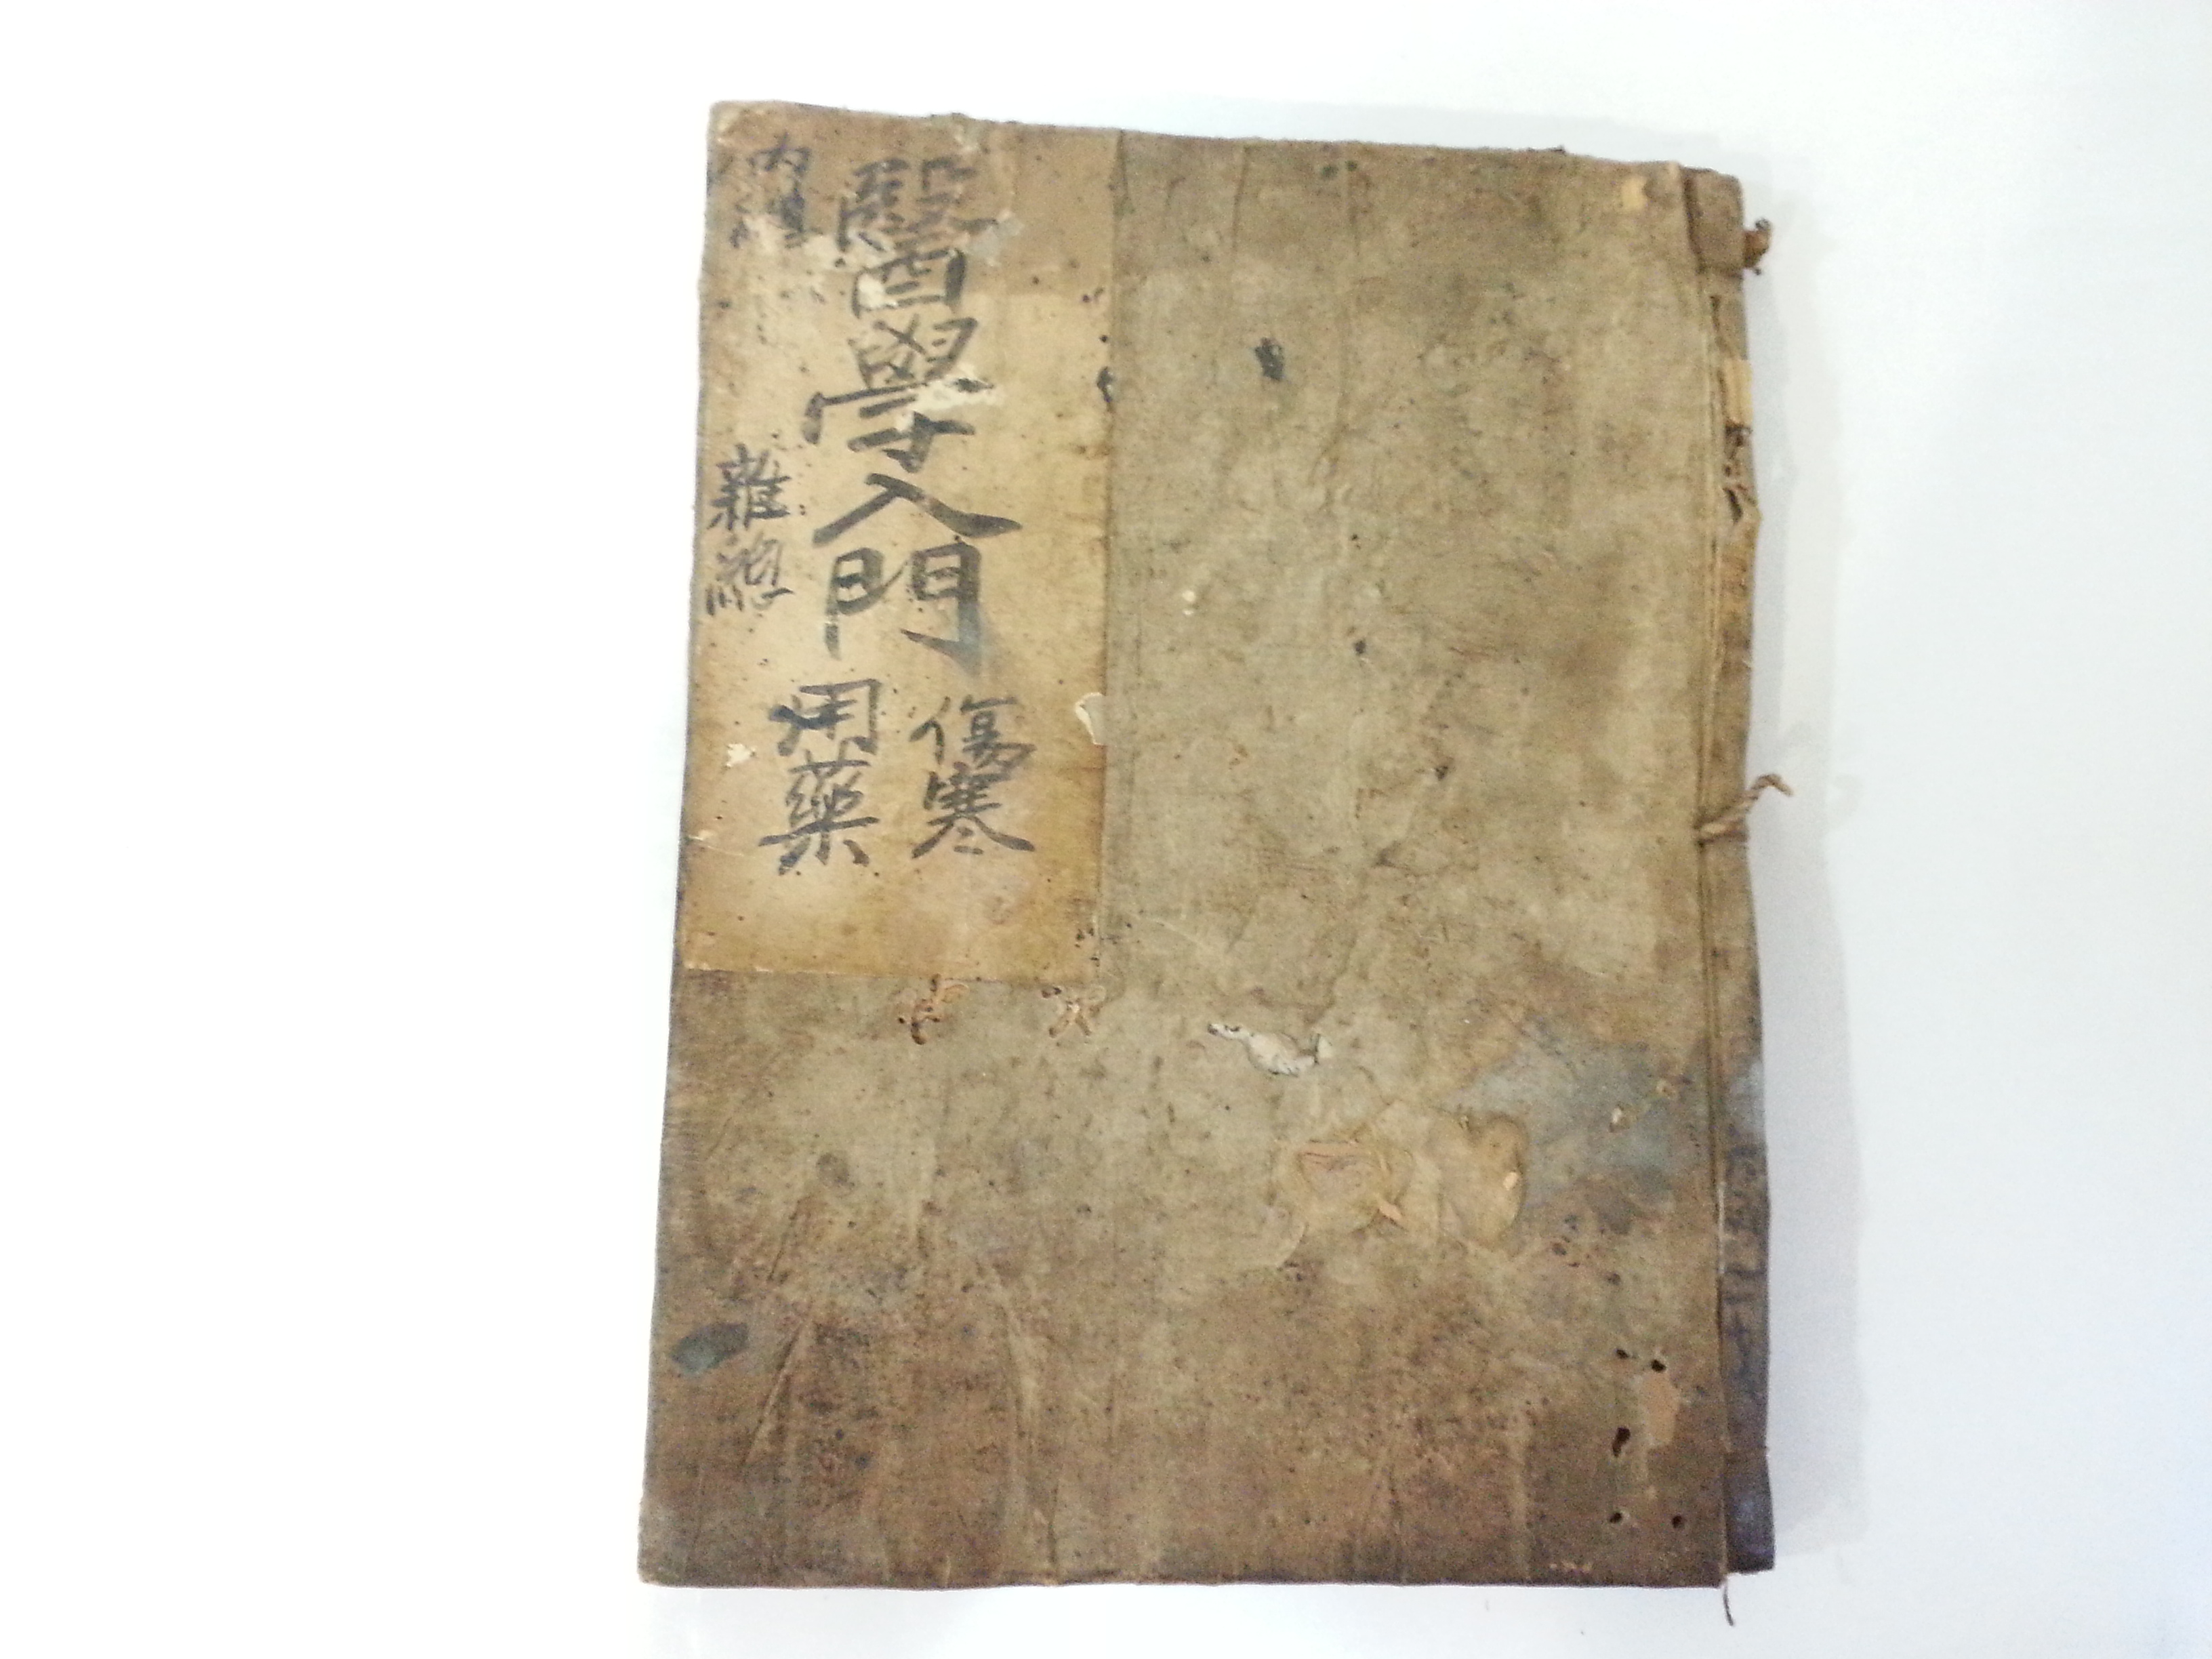 醫學入門
傷寒
用藥
雜總
內